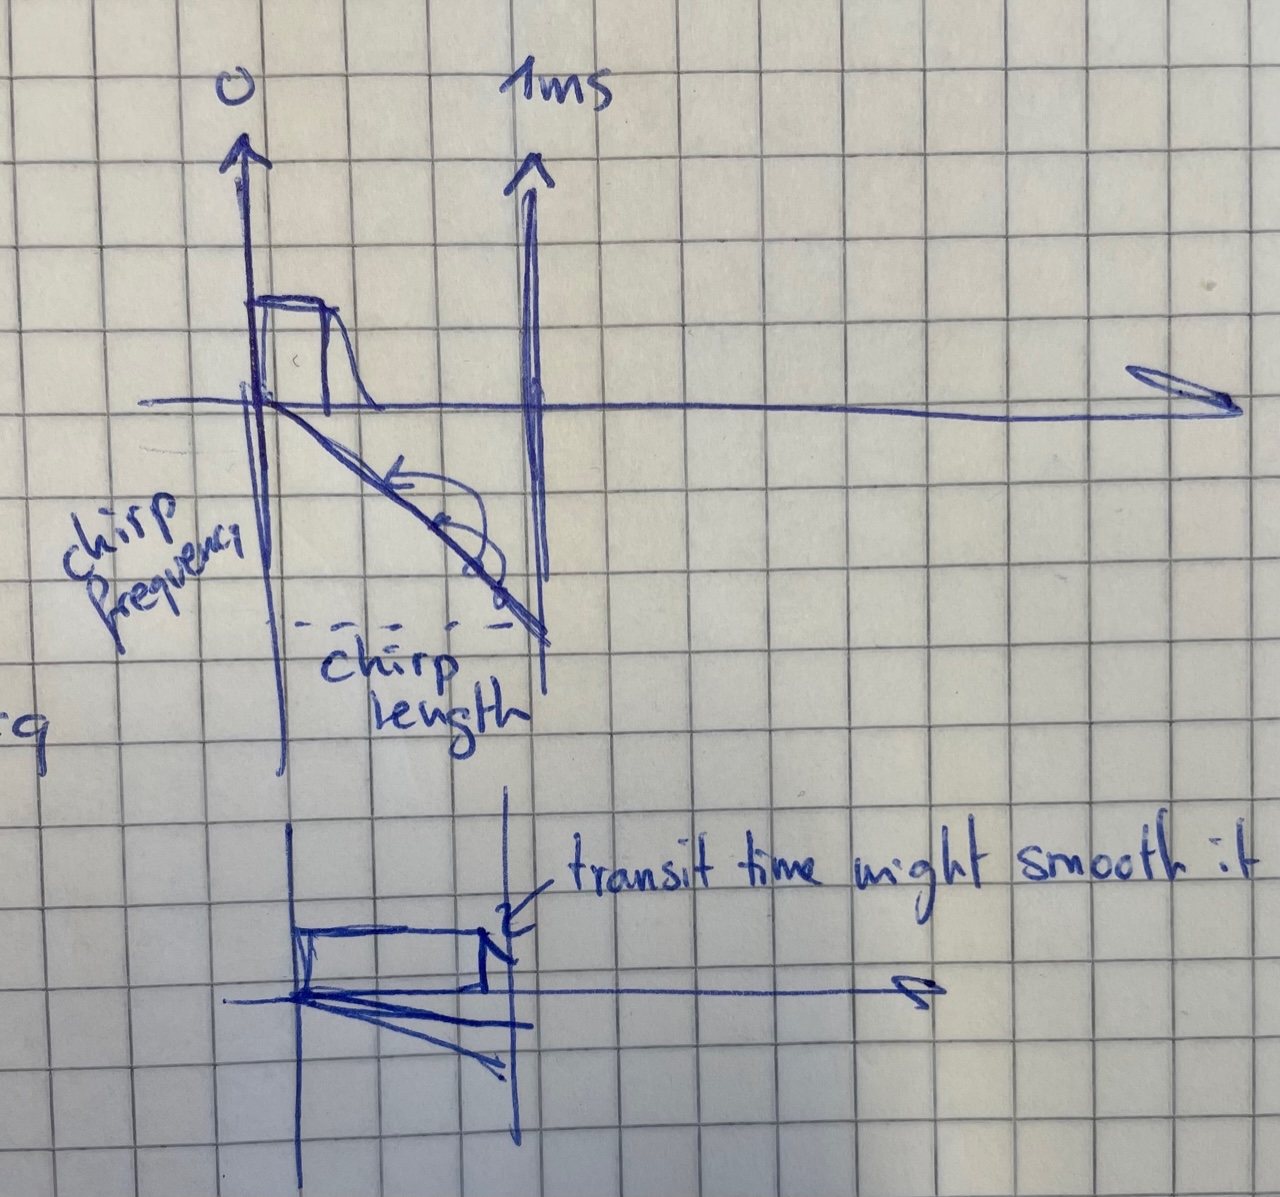 0
1ms
chirp
frequency
chirp
length
transit time might smooth it